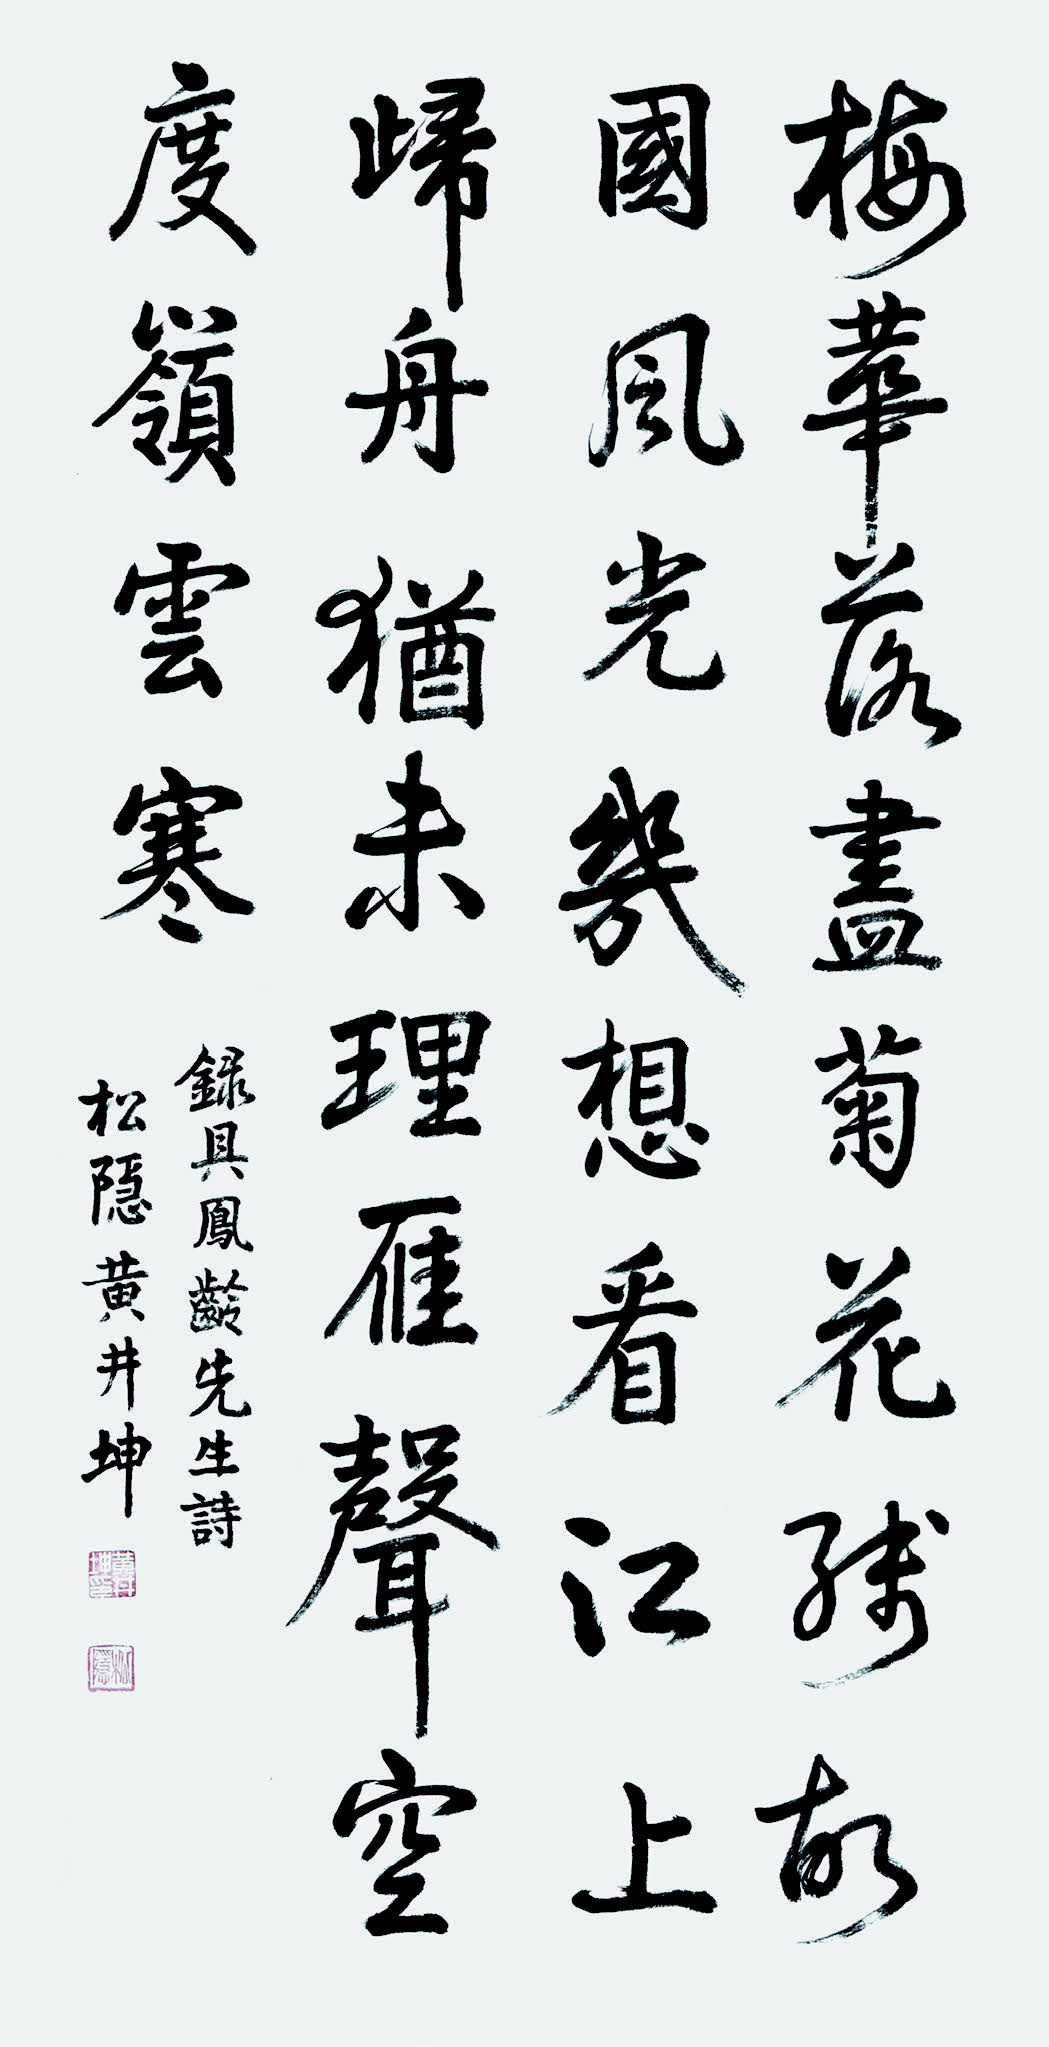 梅華落盡菊花殘故
國風光幾想看江上
歸舟猶未理雁聲空
度嶺雲寒
錄具鳳齡先生詩
松隱黃井坤
黃井坤印
松隱